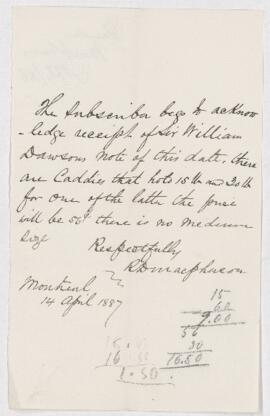 The Subscriber begs to acknow
-ledge receipt of Sir William
Dawsons note of this date, there
are Caddies that hold 15 lb and 30 lb
for one of the latter the price
will be 56¢ there is no medium
size
Respectfully
Montreal
14 April 1887
15
60
9.00
56
30
16.80
1.50.